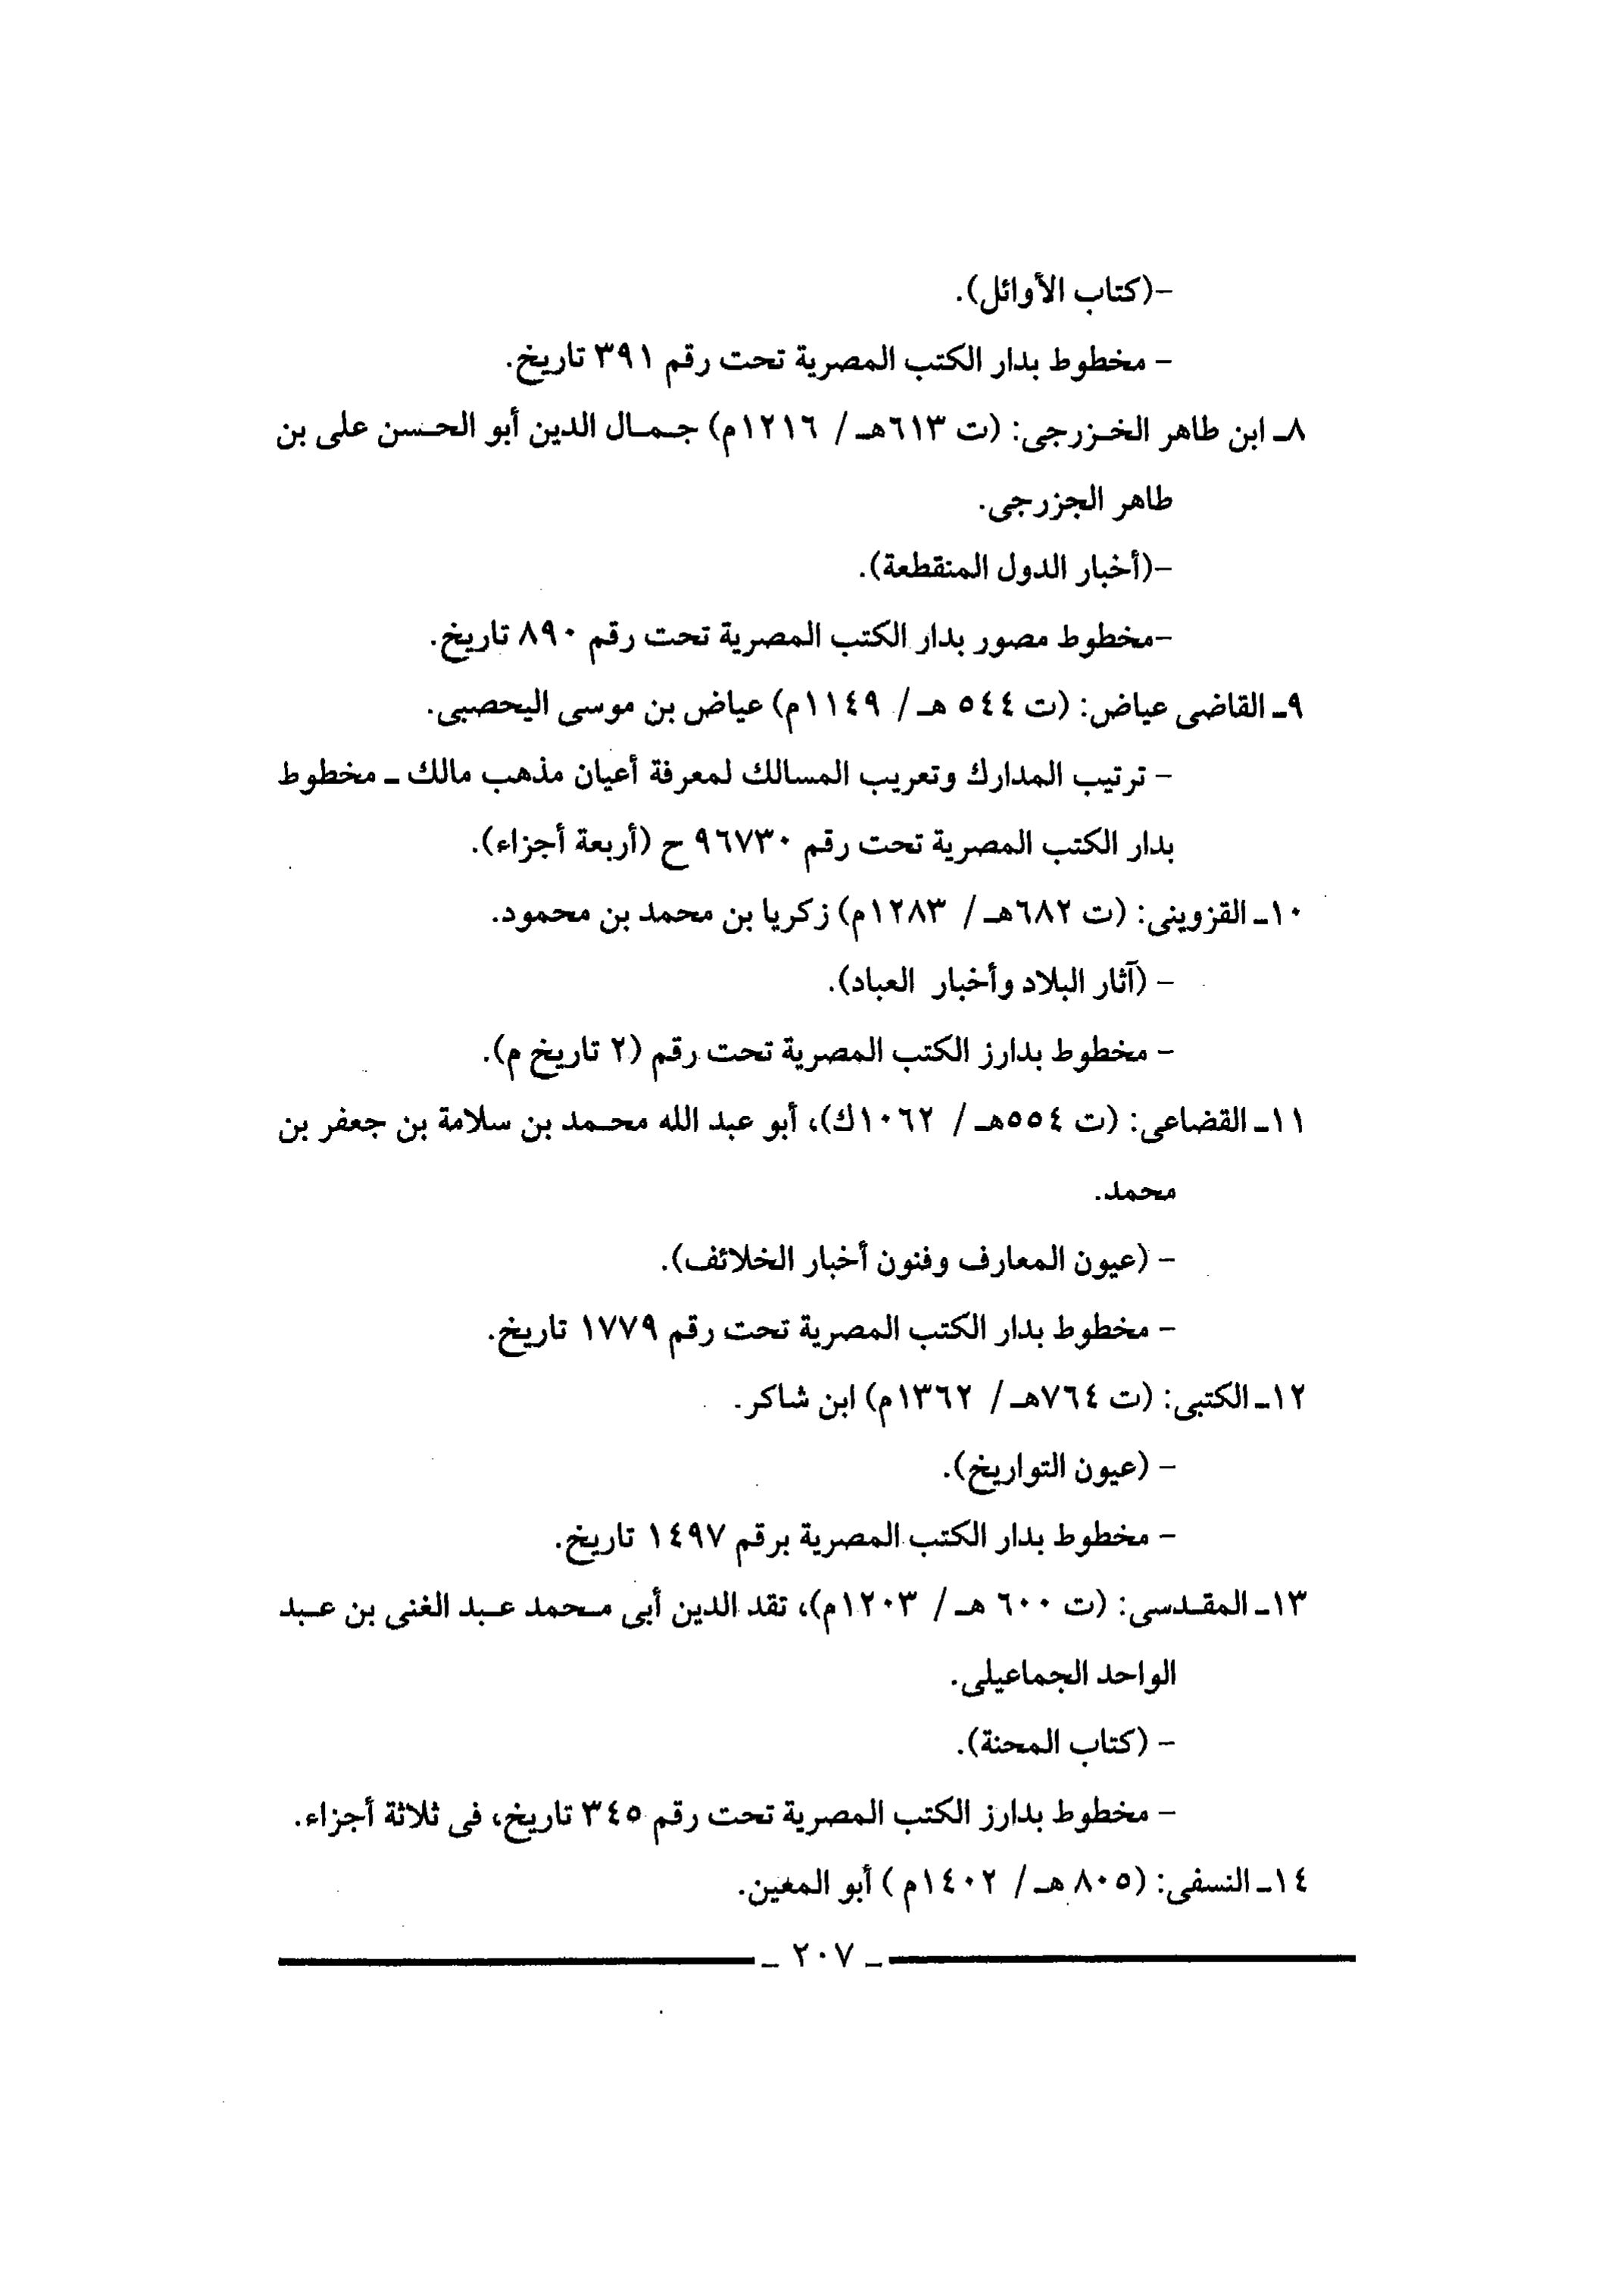 -(كتاب الأوائل).
- مخطوط بدار الكتب المصرية تحت رقم ٣٩١ تاريخ.
٨ـ ابن طاهر الخزرجى: (ت ٦١٣هـ / ١٢١٦م) جمال الدين أبو الحسن على بن
طاهر الجزرجى.
-(أخبار الدول المنقطعة).
-مخطوط مصور بدار الكتب المصرية تحت رقم ٨٩٠ تاريخ.
٩ـ القاضى عياض: (ت ٥٤٤ هـ / ١١٤٩م) عياض بن موسى اليحصبى.
- ترتيب المدارك وتعريب المسالك لمعرفة أعيان مذهب مالك ـ مخطوط
بدار الكتب المصرية تحت رقم ٩٦٧٣٠ ح (أربعة أجزاء).
١٠ـ القزوينى: (ت ٦٨٢هـ / ١٢٨٣م) زكريا بن محمد بن محمود.
- (آثار البلاد وأخبار العباد).
- مخطوط بدارز الكتب المصرية تحت رقم (٢ تاريخ م).
١١ـ القضاعى: (ت ٥٥٤هـ / ١٠٦٢ك)، أبو عبد الله محمد بن سلامة بن جعفر بن
محمد.
- (عيون المعارف وفنون أخبار الخلائف).
- مخطوط بدار الكتب المصرية تحت رقم ١٧٧٩ تاريخ.
١٢ـ الكتبى: (ت ٧٦٤هـ / ١٣٦٢م) ابن شاكر.
- (عيون التواريخ).
- مخطوط بدار الكتب المصرية برقم ١٤٩٧ تاريخ.
١٣ـ المقدسى: (ت ٦٠٠ هـ / ١٢٠٣م)، تقد الدين أبى محمد عبد الغنى بن عبد
الواحد الجماعيلى.
- (كتاب المحنة).
- مخطوط بدارز الكتب المصرية تحت رقم ٣٤٥ تاريخ، فى ثلاثة أجزاء.
١٤ـ النسفى: (٨٠٥ هـ / ١٤٠٢م ) أبو المعين.
ـ ٢٠٧ ـ